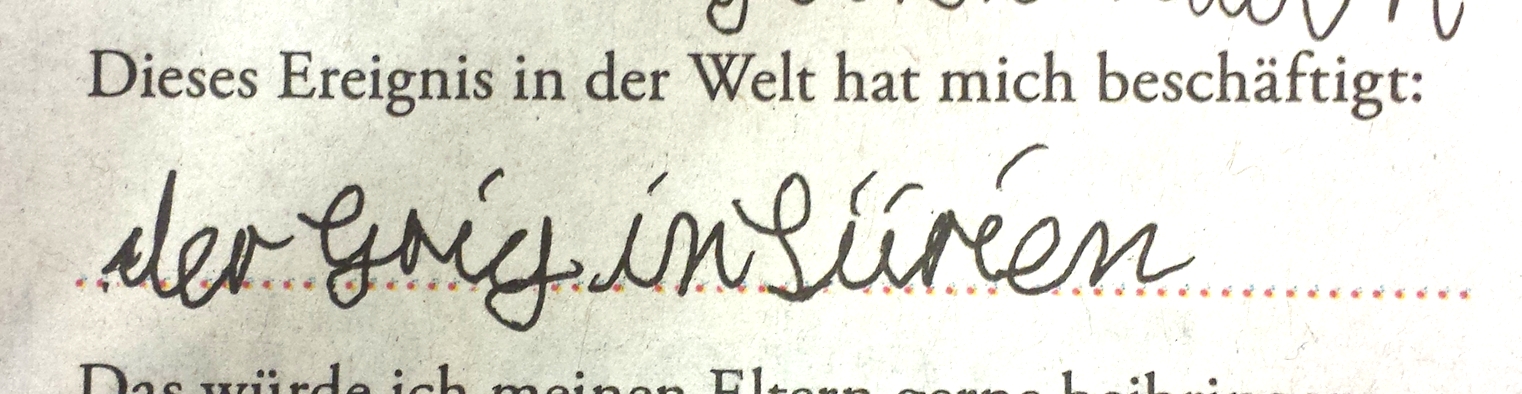 Dieses Ereignis in der Welt hat mich beschäftigt:
der Grig in Sürien
Das würde ich meinen Eltern gerne